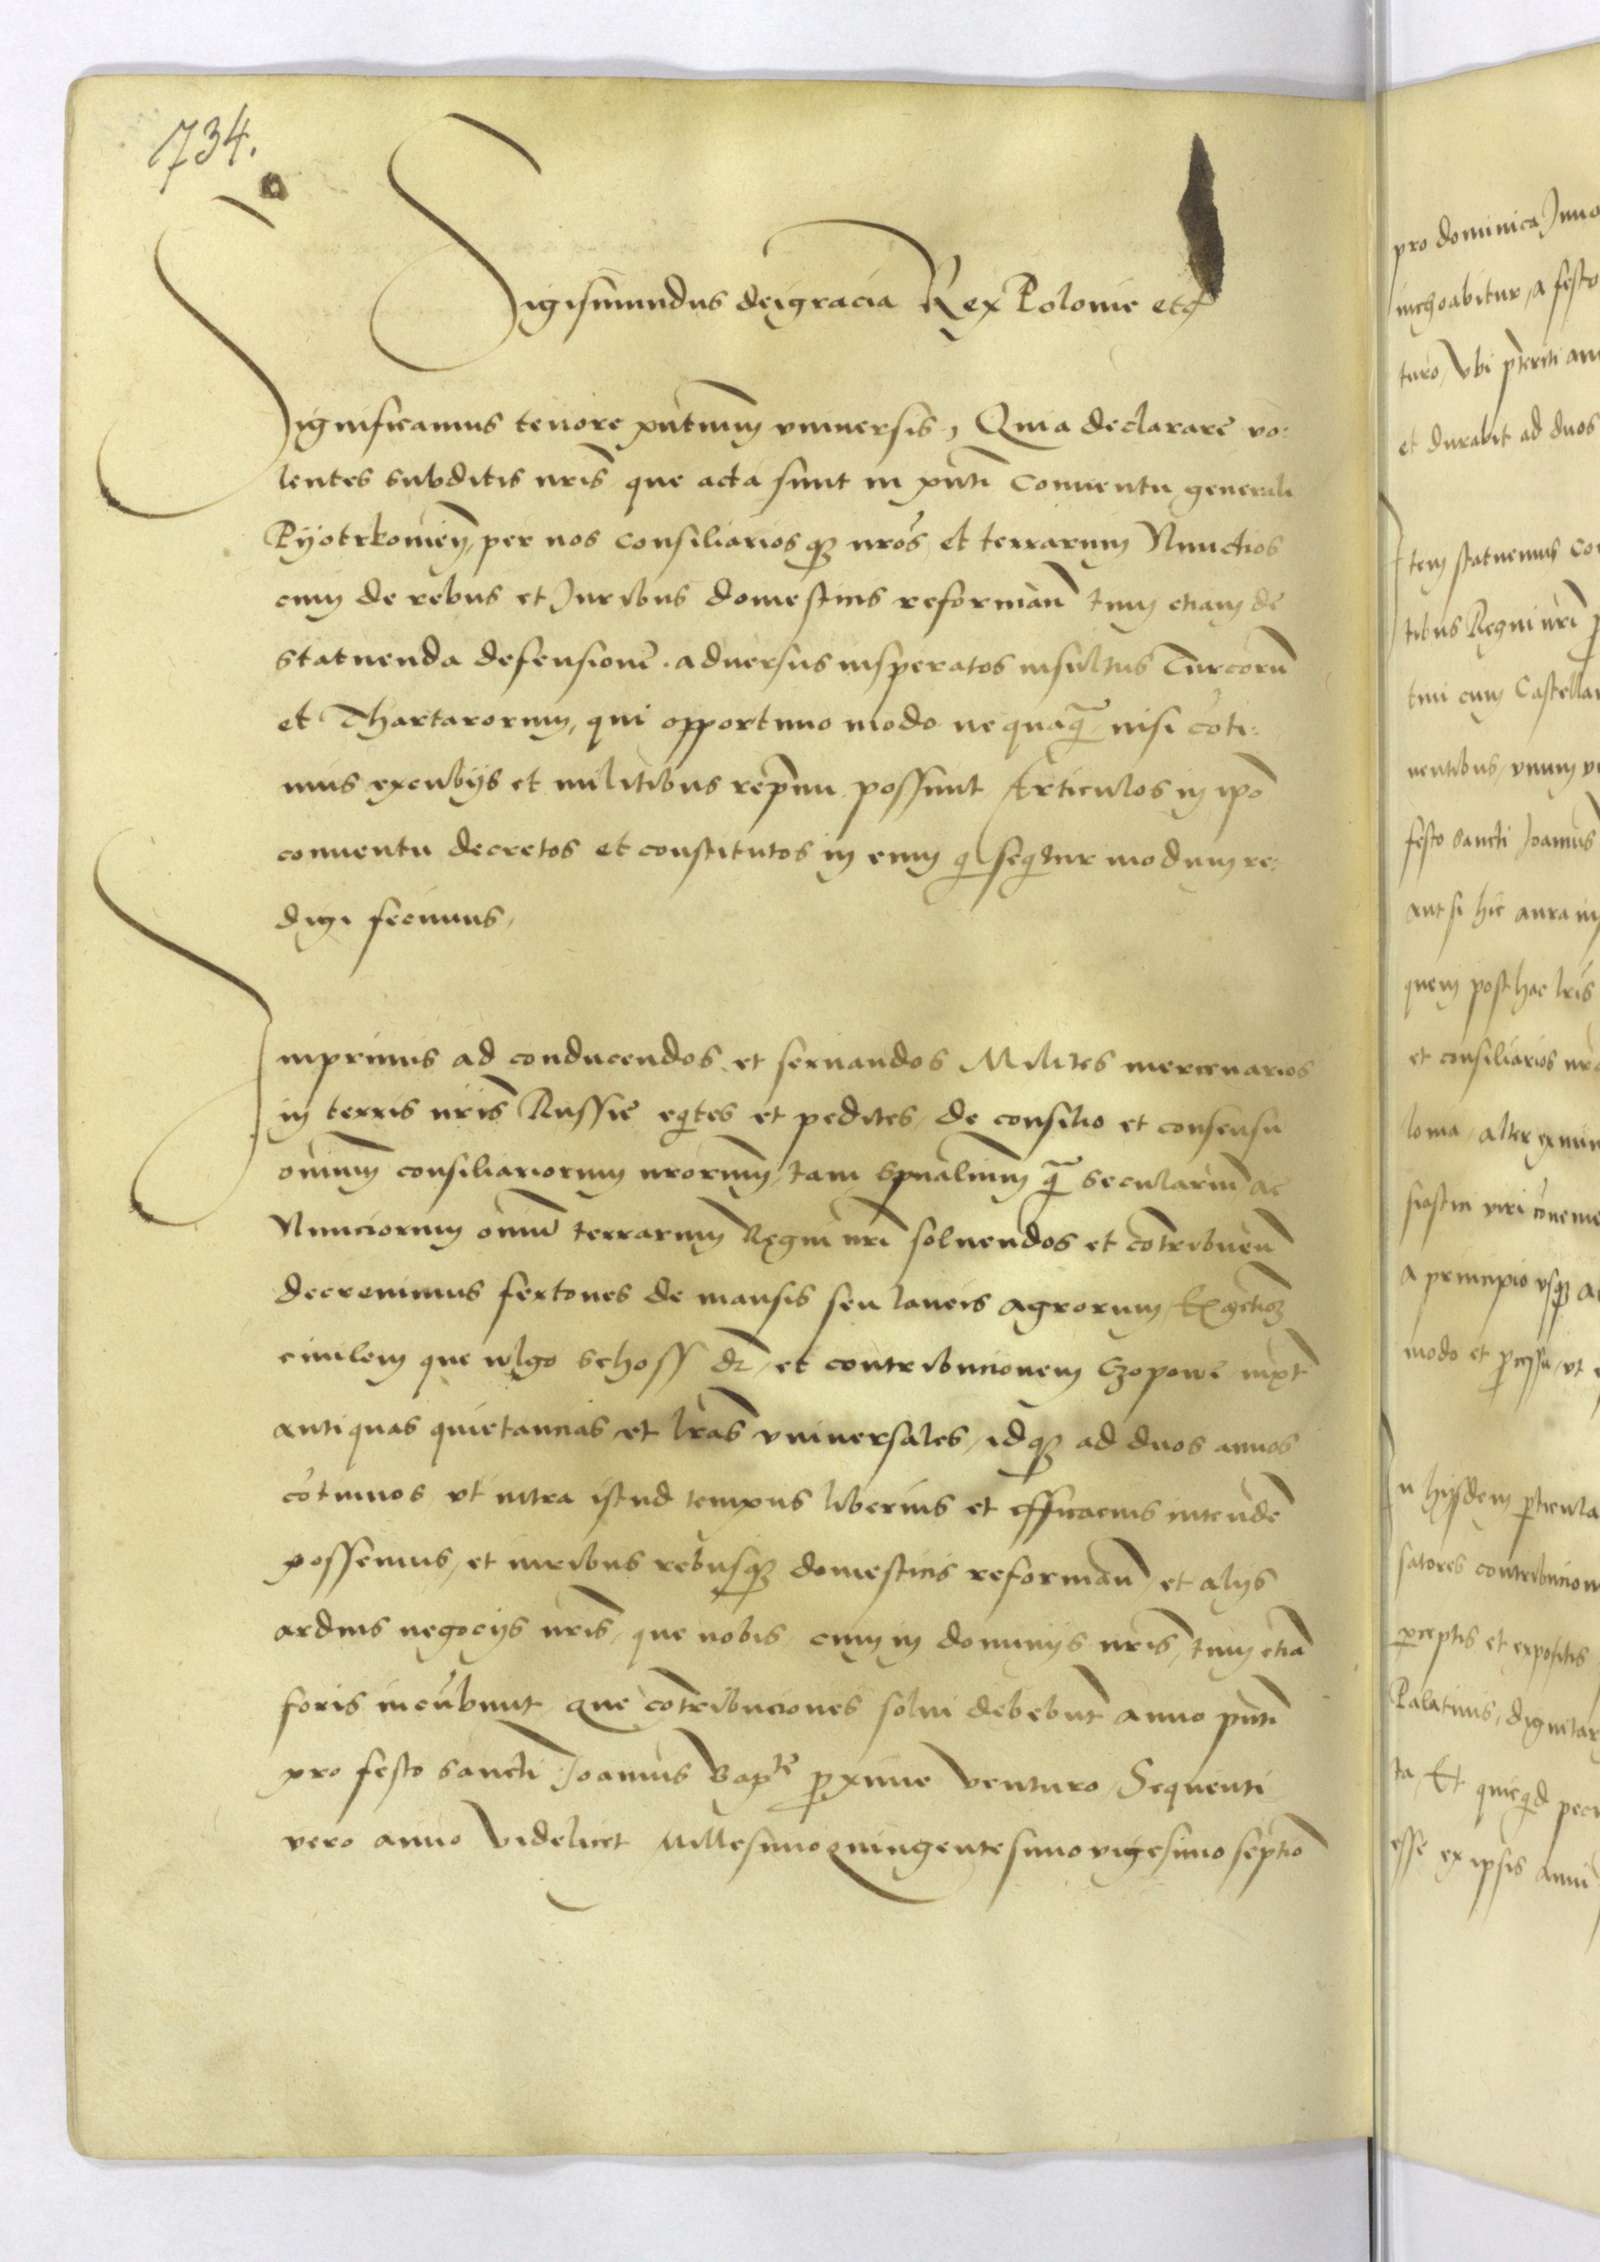 734.
Sigismundus dei gracia Rex Polonie etc
Significamus tenore pntium vniuersis, Quia declarare vo:
lentes subditis nris que acta sunt in pnti Conuentu generali
Pyotrkouien, per nos consiliariosq nros et terrarum Nunctios
cum de rebus et Juribus domesticis reforman tum etiam de
statuenda defensione aduersus insperatos insultus Turcoru
et Thartarorum, qui opportuno modo nequaq nisi coti:
nuis excubijs et militibus repmi possunt Articulos in ipo
conuentu decretos et constitutos in eum q sequtur modum re:
digi fecimus,
Inprimis ad conducendos et seruandos Milites mercenarios
in terris nris Russie eqtes et pedites, de consilio et consensu
omnium consiliariorum nrorum, tam spualium q seculariu ac
Nunciorum omniu terrarum Regni nri soluendos et contribuen
decreuimus fertones de mansis seu laneis agrorum, Exactioz
ciuilem que vlgo schoss dr, et contribucionem Czopowe iuxt
antiquas quietancias et lras vniuersales, idq ad duos annos
cotinuos vt intra istud tempus liberius et efficacius intende
possemus, et iuribus rebusq domesticis reforman et alijs
arduis negocijs nris, que nobis, cum in dominijs nris, tum etia
foris incubunt que contribuciones solui debebunt anno pnti
pro festo sancti Joannis Bapte pxime venturo Sequenti
vero anno videlicet Millesimoquingentesimovigesimo septio
pro dominica Inuo
inchoabitur, a festo
turo, vbi pteriti an
et durabit ad duos
Item statuemus Co
tibus Regni nri p
tini cum Castellan
nentibus, vnum v
festo sancti Joannis
aut si hic aura in
quem posthac lris
et consiliarios nro
lonia, alter ex min
siastici viri conueni
a principio vsq a
modo et pcessu, vt
In hijsdem pticula
satores contribucion
pceptis et expositis
Palatinis, dignitar
ta, Et quicqd pecu
esse ex ipsis anni